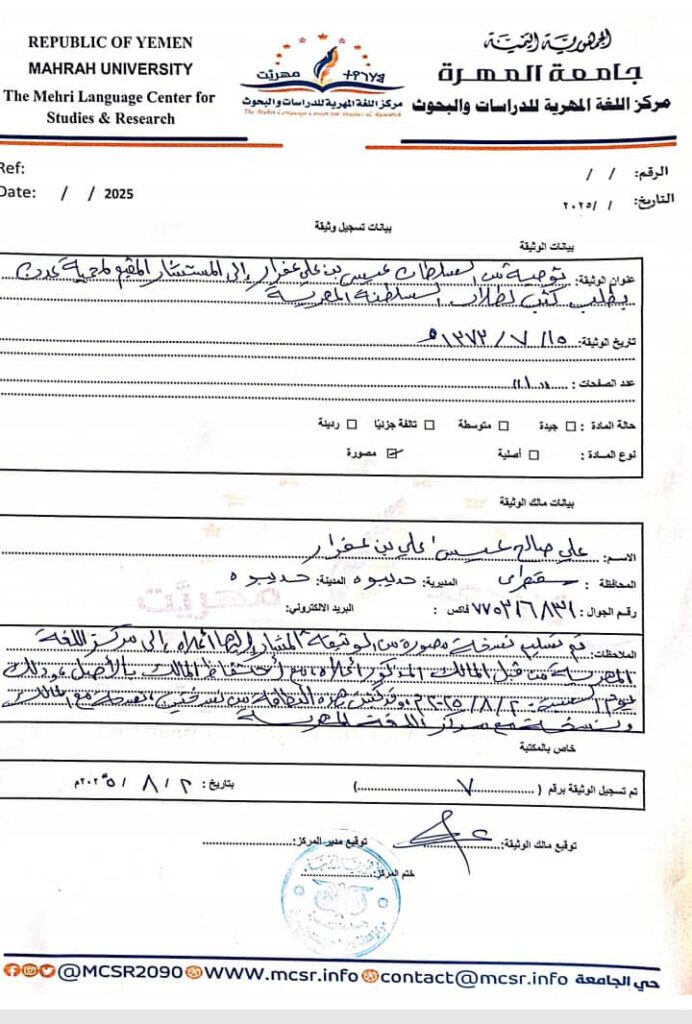 REPUBLIC OF YEMEN
MAHRAH UNIVERSITY
The Mehri Language Center for
Studies & Research
مهريّت
مركز اللغة المهرية للدراسات والبحوث
The Mehri Language Center for Studies & Research
الجمهورية اليمنية
جامعة المهرة
مركز اللغة المهرية للدراسات والبحوث
Ref:
Date: / / 2025
الرقم: / /
التاريخ: / /٢٠٢٥
بيانات تسجيل وثيقة
بيانات الوثيقة
عنوان الوثيقة: توصية من السلطان عيسى بن علي عفرار إلى المستشار المقيم لمحمية عدن
بطلب كتب لطلاب السلطنة المهرية
تاريخ الوثيقة: ١٥/ ٧ / ١٣٧٣هـ
عدد الصفحات: ١
حالة المادة: ☐ جيدة ☐ متوسطة ☐ تالفة جزئيا ☐ رديئة
نوع المادة: ☐ أصلية ☑ مصورة
بيانات مالك الوثيقة
الاسم: علي صالح عيسى علي بن عفرار
المحافظة: سقطرى المديرية: حديبوه المدينة: حديبوه
رقم الجوال: فاكس: البريد الالكتروني:
الملاحظات: تم تسليم نسخة مصورة من الوثيقة المشار إليها أعلاه إلى مركز اللغة
المهرية من قبل المالك المذكور أعلاه، مع احتفاظ المالك بالأصل، وذلك
يوم السبت ٢٠٢٥/٨/٢م، وقد كتبت هذه البطاقة من نسختين نسخة مع المالك
ونسخة مع مركز اللغة المهرية
خاص بالمكتبة
تم تسجيل الوثيقة برقم ( ٧ ) بتاريخ: ٢ / ٨ / ٢٠٢٥م
توقيع مالك الوثيقة: توقيع مدير المركز:
ختم المركز:
@MCSR2090 WWW.mcsr.info contact@mcsr.info حي الجامعة